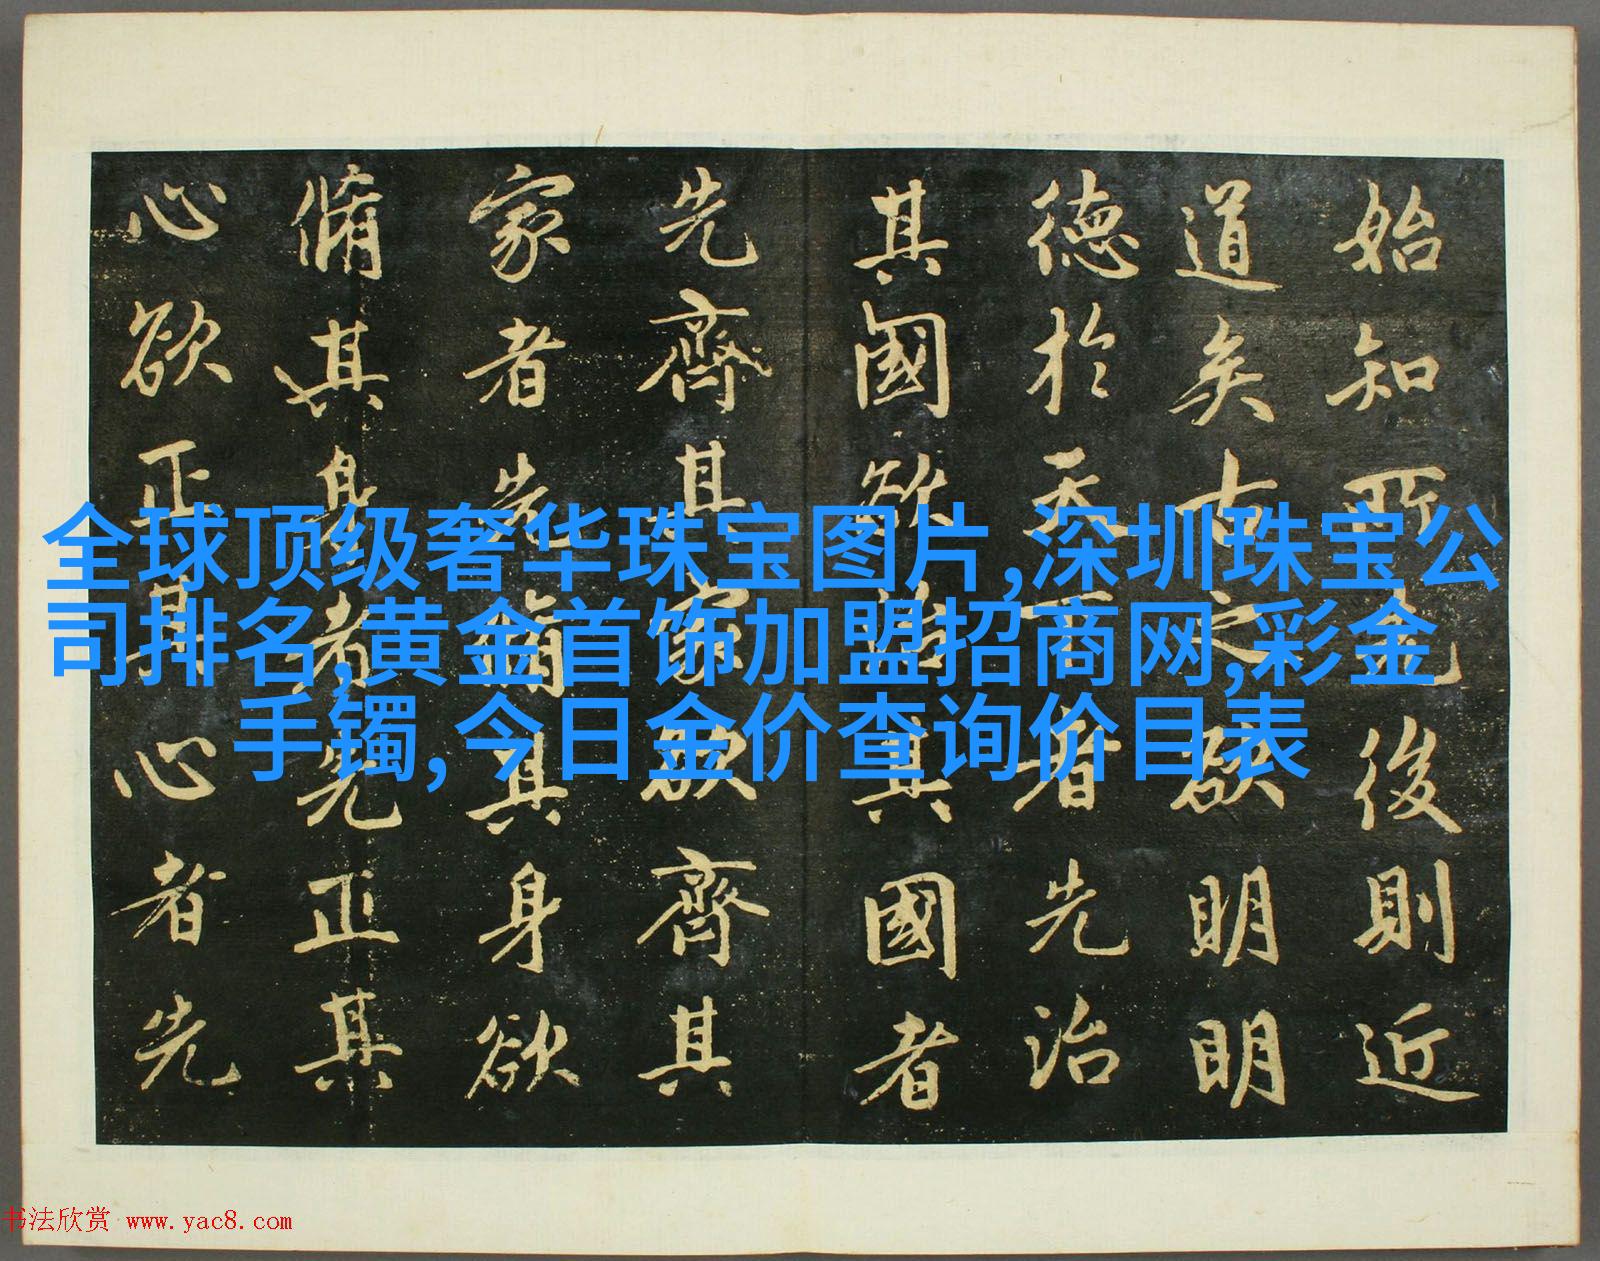 始知所先後則近
道矣古之欲明明
德於天下者先治
其國欲治其國者
先齊其家欲齊其
家者先脩其身欲
脩其身者先正其
心欲正其心者先
全球顶级奢华珠宝图片,深圳珠宝公
司排名,黄金首饰加盟招商网,彩金
手镯, 今日金价查询价目表
书法欣赏 www.yac8.com